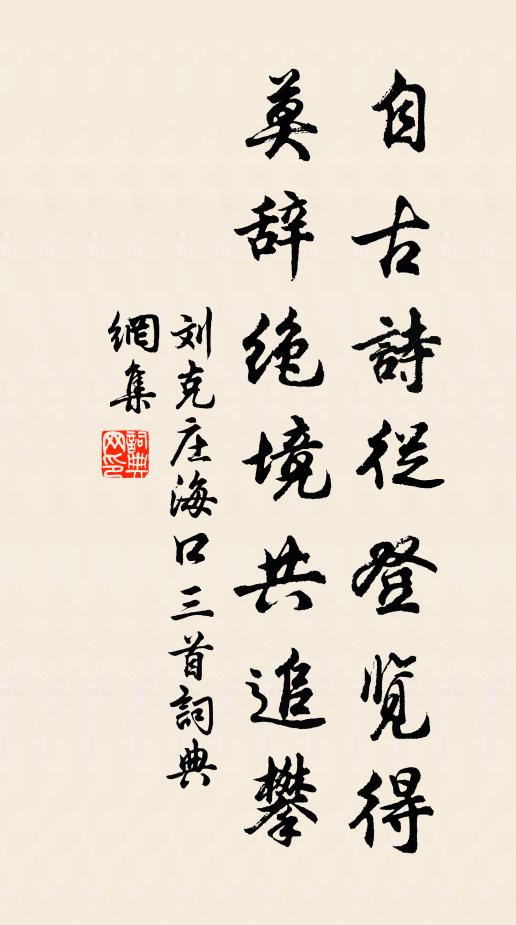 自古詩從登览得
莫辞绝境共追攀
刘克庄海口三首詞典
網集
詞典
网印